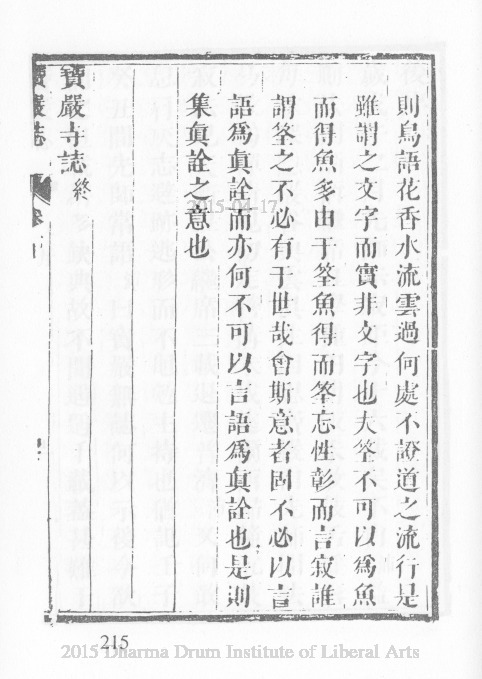 則鳥語花香水流雲過何處不證道之流行是
雖謂之文字而實非文字也夫筌不可以為魚
而得魚多由于筌魚得而筌忘性彰而言寂誰
謂筌之不必有于世哉會斯意者固不必以言
語為眞詮而亦何不可以言語為眞詮也是則
集眞詮之意也
寶嚴寺誌終
寶嚴誌
2015-04-17
215
2015 Dharma Drum Institute of Liberal Arts